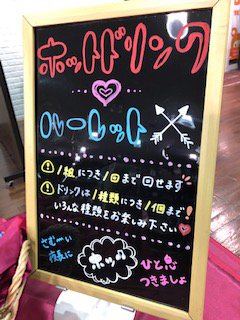 ホットドリンク
ルーレット
! 1組につき1回まで回せます!
! ドリンクは1種類につき1個まで!
いろんな種類をお楽しみ下さい♥
さむーい
夜長に
ホッ
ひと息
つきましょ